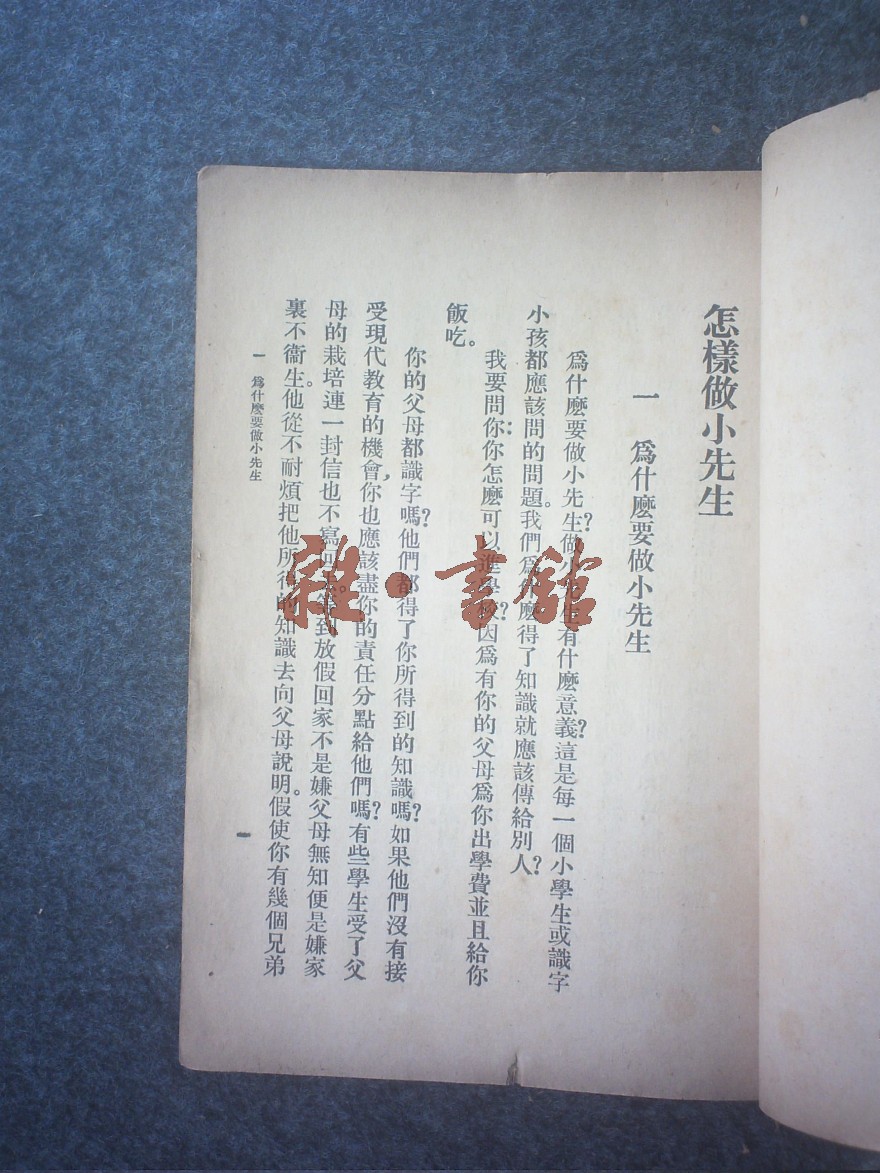 怎樣做小先生
一 爲什麽要做小先生
爲什麽要做小先生?做小先生有什麽意義?這是每一個小學生或識字
小孩都應該問的問題。我們爲什麽得了知識就應該傳給別人?
我要問你:你怎麽可以進學校?因爲有你的父母爲你出學費並且給你
飯吃。
你的父母都識字嗎?他們都得了你所得到的知識嗎?如果他們沒有接
受現代教育的機會,你也應該盡你的責任分點給他們嗎?有些學生受了父
母的栽培連一封信也不寫回到放假回家不是嫌父母無知便是嫌家
裏不衞生。他從不耐煩把他所得的知識去向父母說明。假使你有幾個兄弟
一 爲什麽要做小先生
一
雜·書館